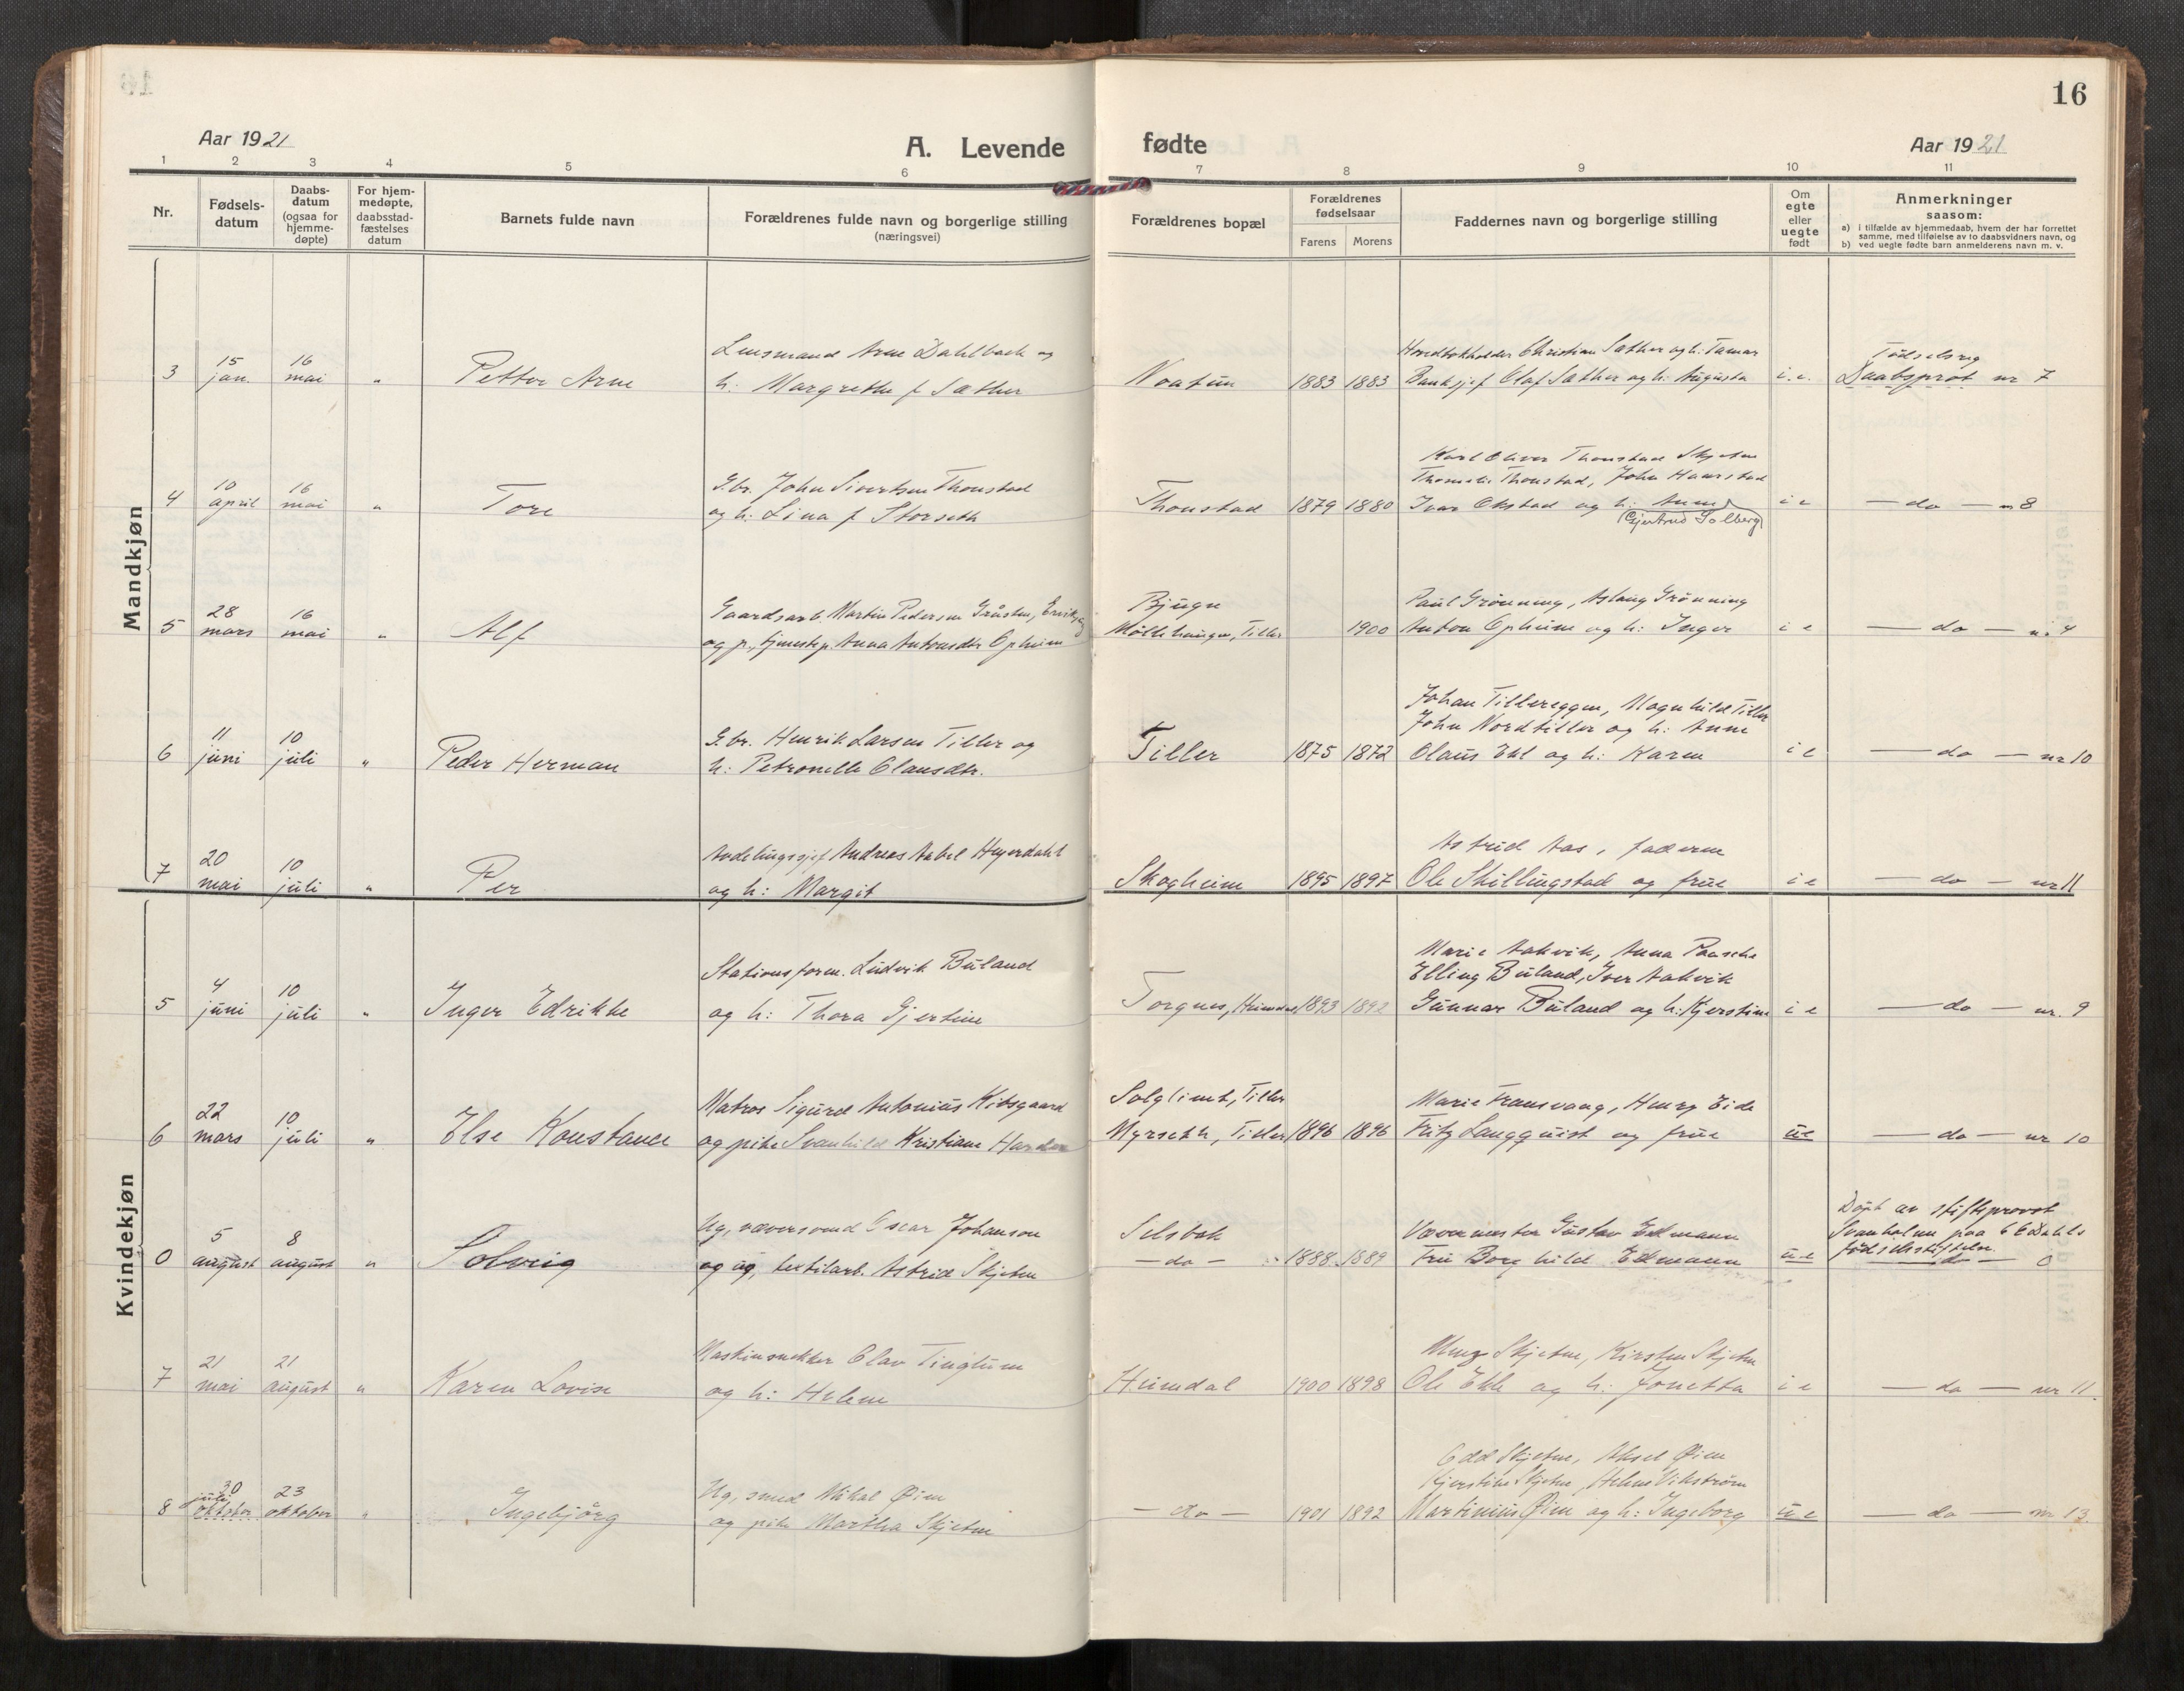 16
Aar 1921
A. Levende fødte
Aar 1921
1 2 3 4 5 6 7 8 9 10 11
Nr.
Fødsels-
datum
Daabs-
datum
(ogsaa for
hjemme-
døpte)
For hjem-
medøpte,
daabsstad-
fæstelses
datum
Barnets fulde navn
Forældrenes fulde navn og borgerlige stilling
(næringsvei)
Forældrenes bopæl
Forældrenes
fødselsaar
Farens Morens
Faddernes navn og borgerlige stilling
Om
egte
eller
uegte
født
Anmerkninger
saasom:
a) i tilfælde av hjemmedaab, hvem der har forrettet
samme, med tilføielse av to daabsvidners navn, og
b) ved uegte fødte barn anmelderens navn m. v.
Mandkjøn
3
15
jan.
16
mai
"
Petter Arne
Lensmand Arne Dahlback og
h: Margrethe f Sæther
Noatun
1883 1883
Christian Sæther og h: Tamar
Banksjef Olaf Sæther og h: Augusta
i.e.
Fødselsreg
Daabsprot nr 7
4
10
april
16
mai
"
Tore
G.br. John Sivertsen Thonstad
og h: Lina f Storseth
Thonstad
1879 1880
Karl Oliver Thonstad Skjetne
Thonstad, John Haarstad
Ivar Okstad og h: Anne
(Gjertrud Solberg)
i e
— do — n 8
5
28
mars
16
mai
"
Alf
Gaardsarb. Martin Pedersen
og p., tjenestep. Anna Antonsdtr Opheim
Bjugn
Møllehaugen, Tiller
1900
Paul Grönning, Aslaug Grönning
Anton Opheim og h: Inger
— do —
6
11
juni
10
juli
"
Peder Herman
G.br. Henrik Larsen Tiller og
h: Petronelle Olausdtr.
Tiller
1875 1872
Johan Tillereggen, Magnhild Tiller
John Nordtiller og h: Anne
Olaus Ekl og h: Karen
i e
— do — nr 10
7
20
mai
10
juli
"
Per
Avdelingssjef Andreas Aabel Heyerdahl
og h: Margit
Skogheim
1895 1897
Astrid Aas, faderen
Ole Skillingstad og frue
i e
— do — nr 11
Kvindekjøn
5
4
juni
10
juli
"
Inger Edrikke
Stationsform. Ludvik Buland
og h: Thora Gjertine
Torgnes, Heimdal
1893 1892
Marie Aakvik, Anna Paasche
Elling Buland, Iver Aakvik
Gunnar Buland og h: Kjerstine
i e
— do — nr. 9
6
22
mars
10
juli
"
Else Konstance
Matros Sigurd Antonius Kibsgaard
og pike Svanhild Kristiane
Solglimt, Tiller
Myrseth, Tiller
1896 1896
Marie Transvaag, Henry Eide
Fritz Langquist og frue
ue
— do — nr 10
0
5
august
8
august
"
Solveig
Ug, væversvend Oscar Johanson
og ug, textilarb. Astrid Skjetne
Selsbak
— do —
1888 1889
Vævermester Gustav Edmann
Fru Borghild Edmann
ue
Döpt av stiftsprovst
Svanholm paa E C Dahls
fødselsstiftelse.
— do — 0
7
21
mai
21
august
"
Karen Lovise
Maskinsnekker Olav Tinglum
og h: Helene
Heimdal
1900 1898
Skjetne, Kirsten Skjetne
Ole Ekle og h: Jonetta
i e
— do — nr 11.
8
30
juli
oktober
23
oktober
"
Ingebjörg
Ug, smed Mikal Øien
og pike Martha Skjetne
— do —
1901 1892
Odd Skjetne, Aksel Øien
Kjerstine Skjetne, Helene Vikström
Martinius Øien og h: Ingeborg
ue
— do — nr 13.